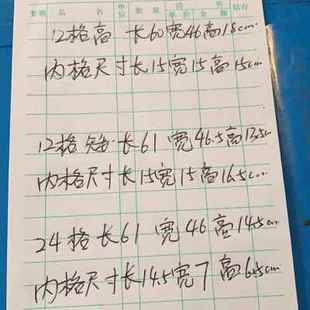 品 名 单位 数量 单价 金额 结存
12格高 长60宽46高18cm
内格尺寸长15宽15高15cm
12格矮长61宽46.5高13.5cm
内格尺寸长15宽15高16.5cm
24格长61宽46高14.5cm
内格尺寸长14.5宽7高6.5cm